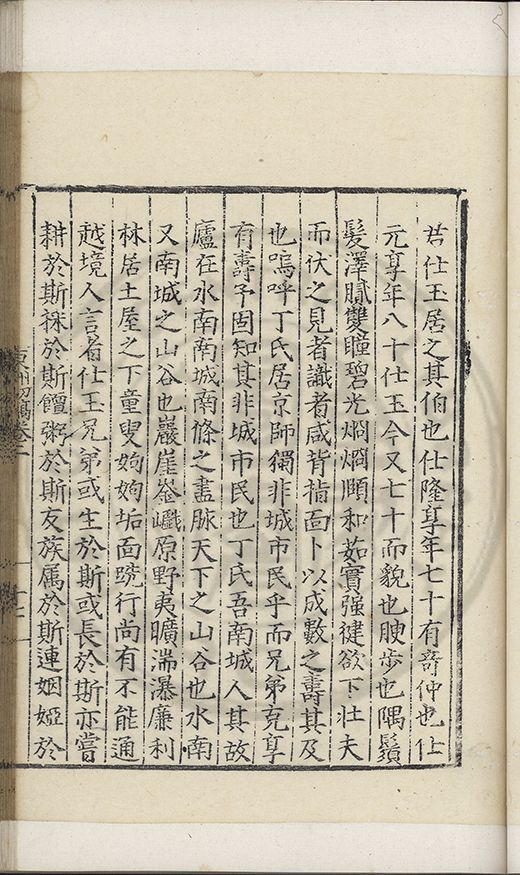 君仕玉居之其伯也仕隆享年七十有奇仲也仕
元享年八十仕玉今又七十而貌也腴步也隅鬚
髮澤膩雙瞳碧光烱烱頤和茹實強健欲下壯夫
而伏之見者識者咸背指面卜以成數之壽其及
也嗚呼丁氏居京師獨非城市民乎而兄弟克享
有壽予固知其非城市民也丁氏吾南城人其故
廬在水南南城南條之盡脉天下之山谷也水南
又南城之山谷也巖崖崟巘原野夷曠湍瀑廉利
林居土屋之下童叟姁姁垢面跣行尚有不能通
越境人言者仕玉兄弟或生於斯或長於斯亦嘗
耕於斯祩於斯饘粥於斯友族属於斯連姻婭於
初稿卷二